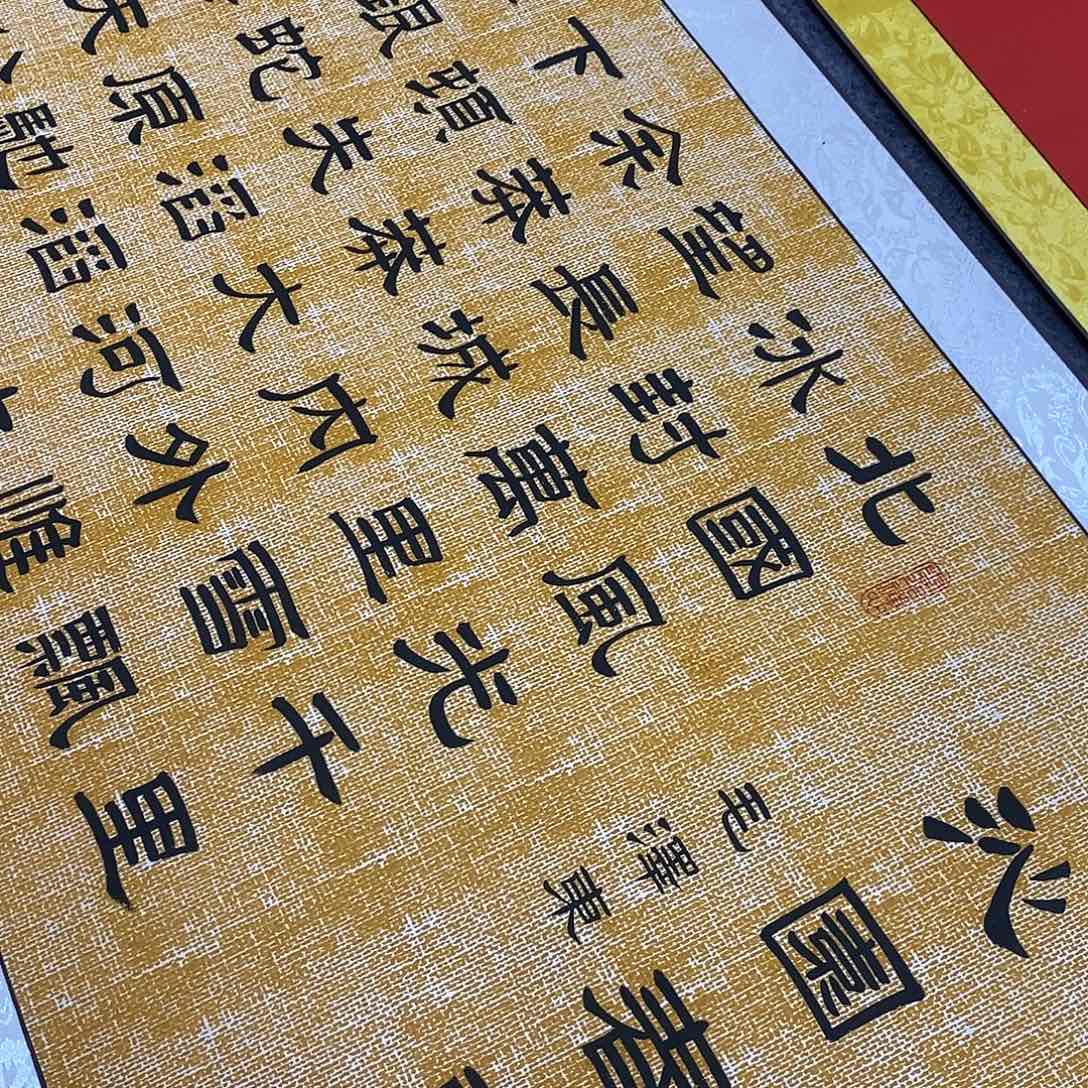 沁園春
毛澤東
北國風光千里
冰封萬里雪飄
望長城內外惟
余莽莽大河
下頓失滔滔
銀蛇原馳
天